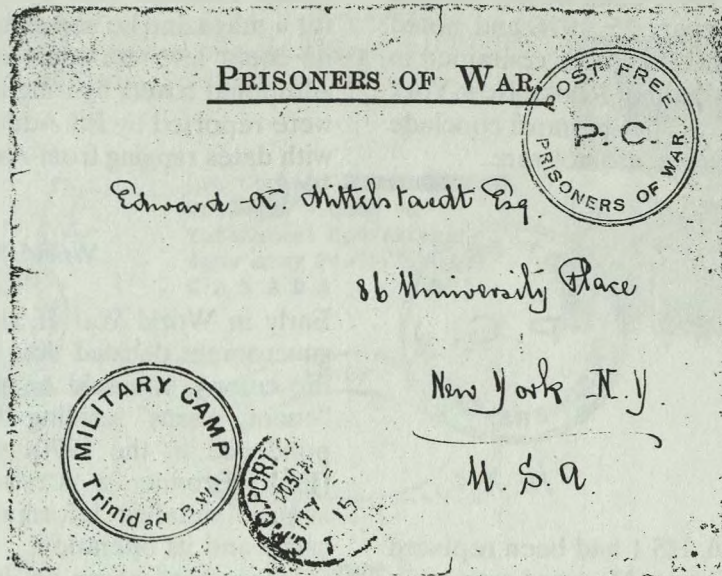 PRISONERS OF WAR.
POST FREE
P.C.
PRISONERS OF WAR.
Edward A. Mittelstaedt Esq.
86 University Place
New York N.Y
U.S.A
MILITARY CAMP
Trinidad B.W.I.
PORT
15